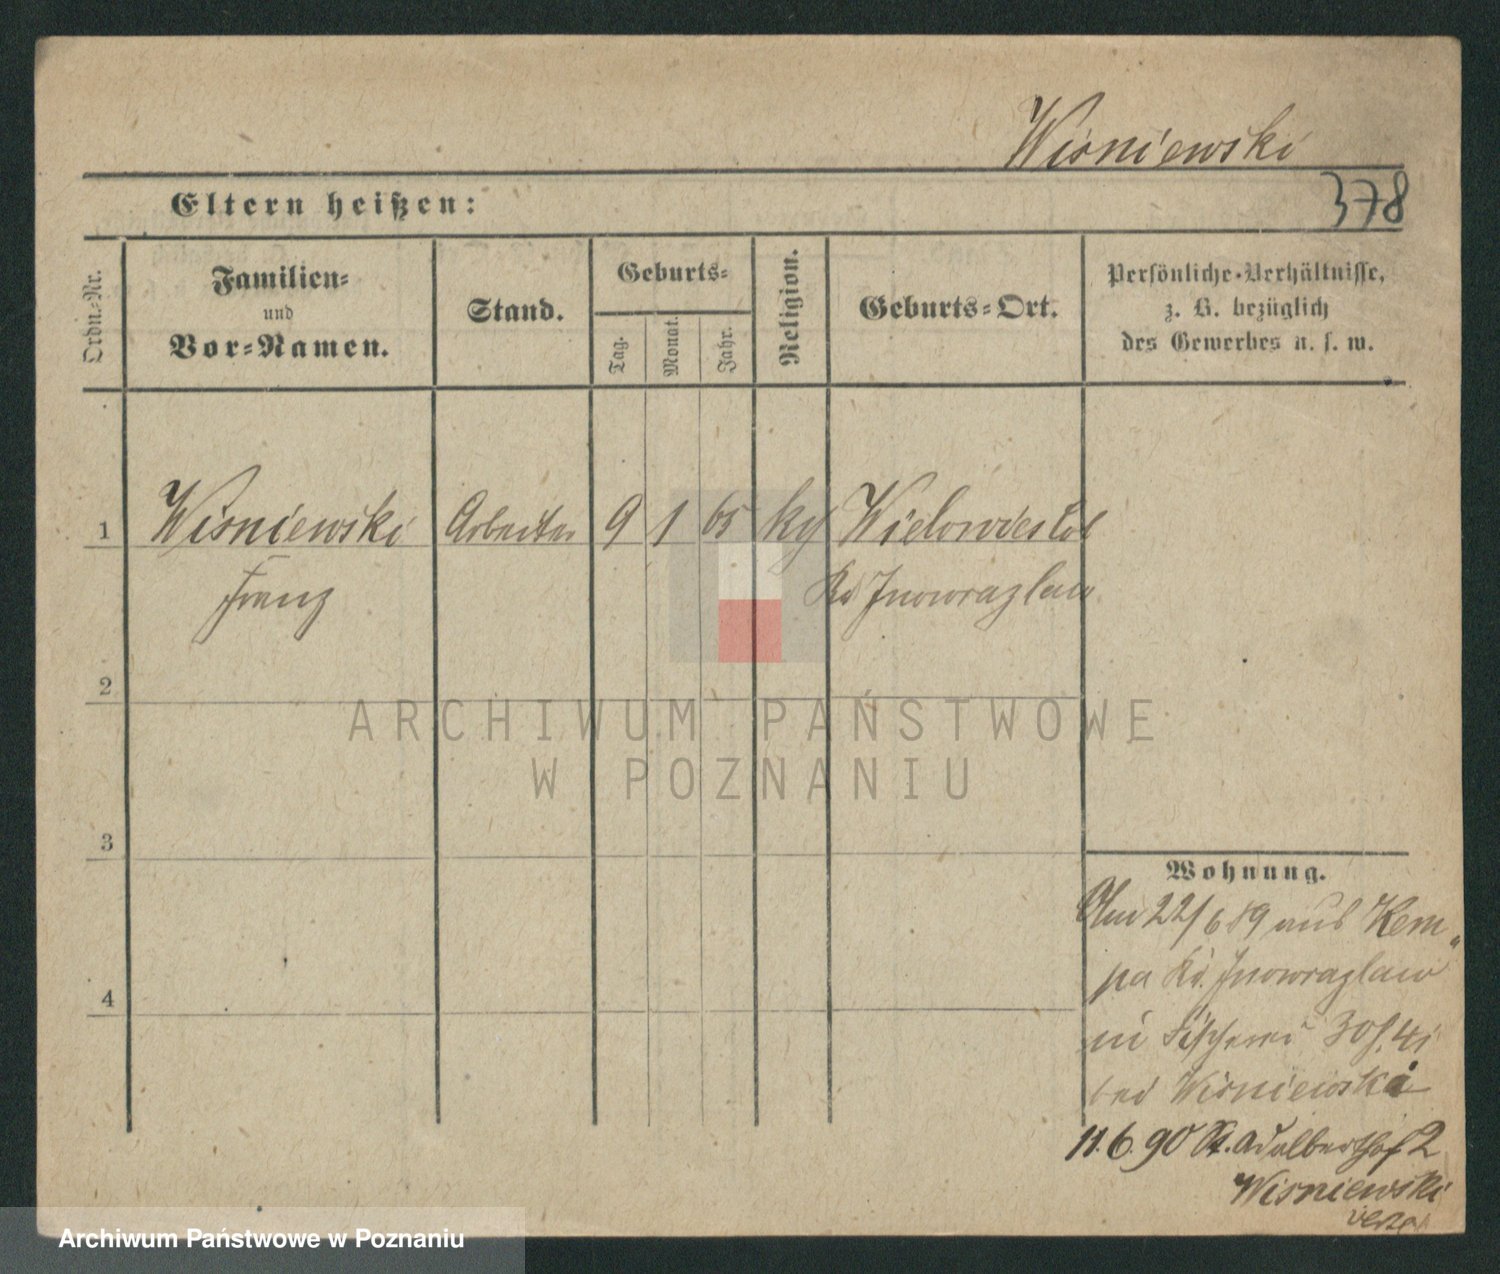 Wisniewski
Eltern heißen:
378
Ordn.-Nr.
Familien-
und
Vor-Namen.
Stand.
Geburts-
Tag.
Monat.
Jahr.
Religion.
Geburts-Ort.
Persönliche-Verhältnisse,
z. B. bezüglich
des Gewerbes u. s. w.
1 Wisniewski Arbeiter 9 1 65 Wielowies
Franz Kr Inowrazlaw
2
ARCHIWUM PAŃSTWOWE
W POZNANIU
3
Wohnung.
Am 22/6 89 aus Kem-
pa Kr. Inowrazlaw
in Fischerei 30
bei Wisniewski
4
11.6.90 St. Adalberthof 2
Wisniewski
Archiwum Państwowe w Poznaniu